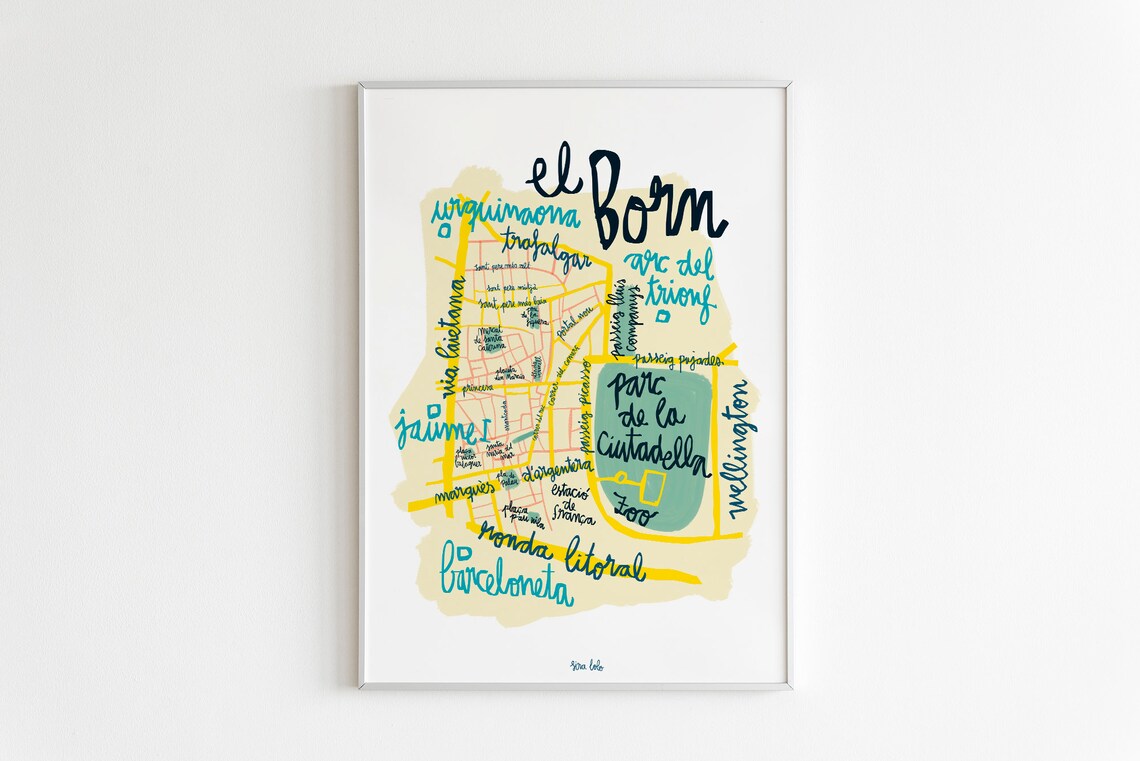 el Born
urquinaona
trafalgar
arc del
trionf
sant pere més alt
sant pere mitjà
sant pere més baix
via laietana
mercat
de santa
caterina
portal nou
passeig lluís
companys
passeig pujades
princesa
carrer del comerç
passeig picasso
parc
de la
Ciutadella
wellington
jaume I
montcada
santa
maria del
mar
marquès d'argentera
pla
de Palau
estació
de
frança
Zoo
plaça
pau vila
ronda litoral
barceloneta
sira lolo